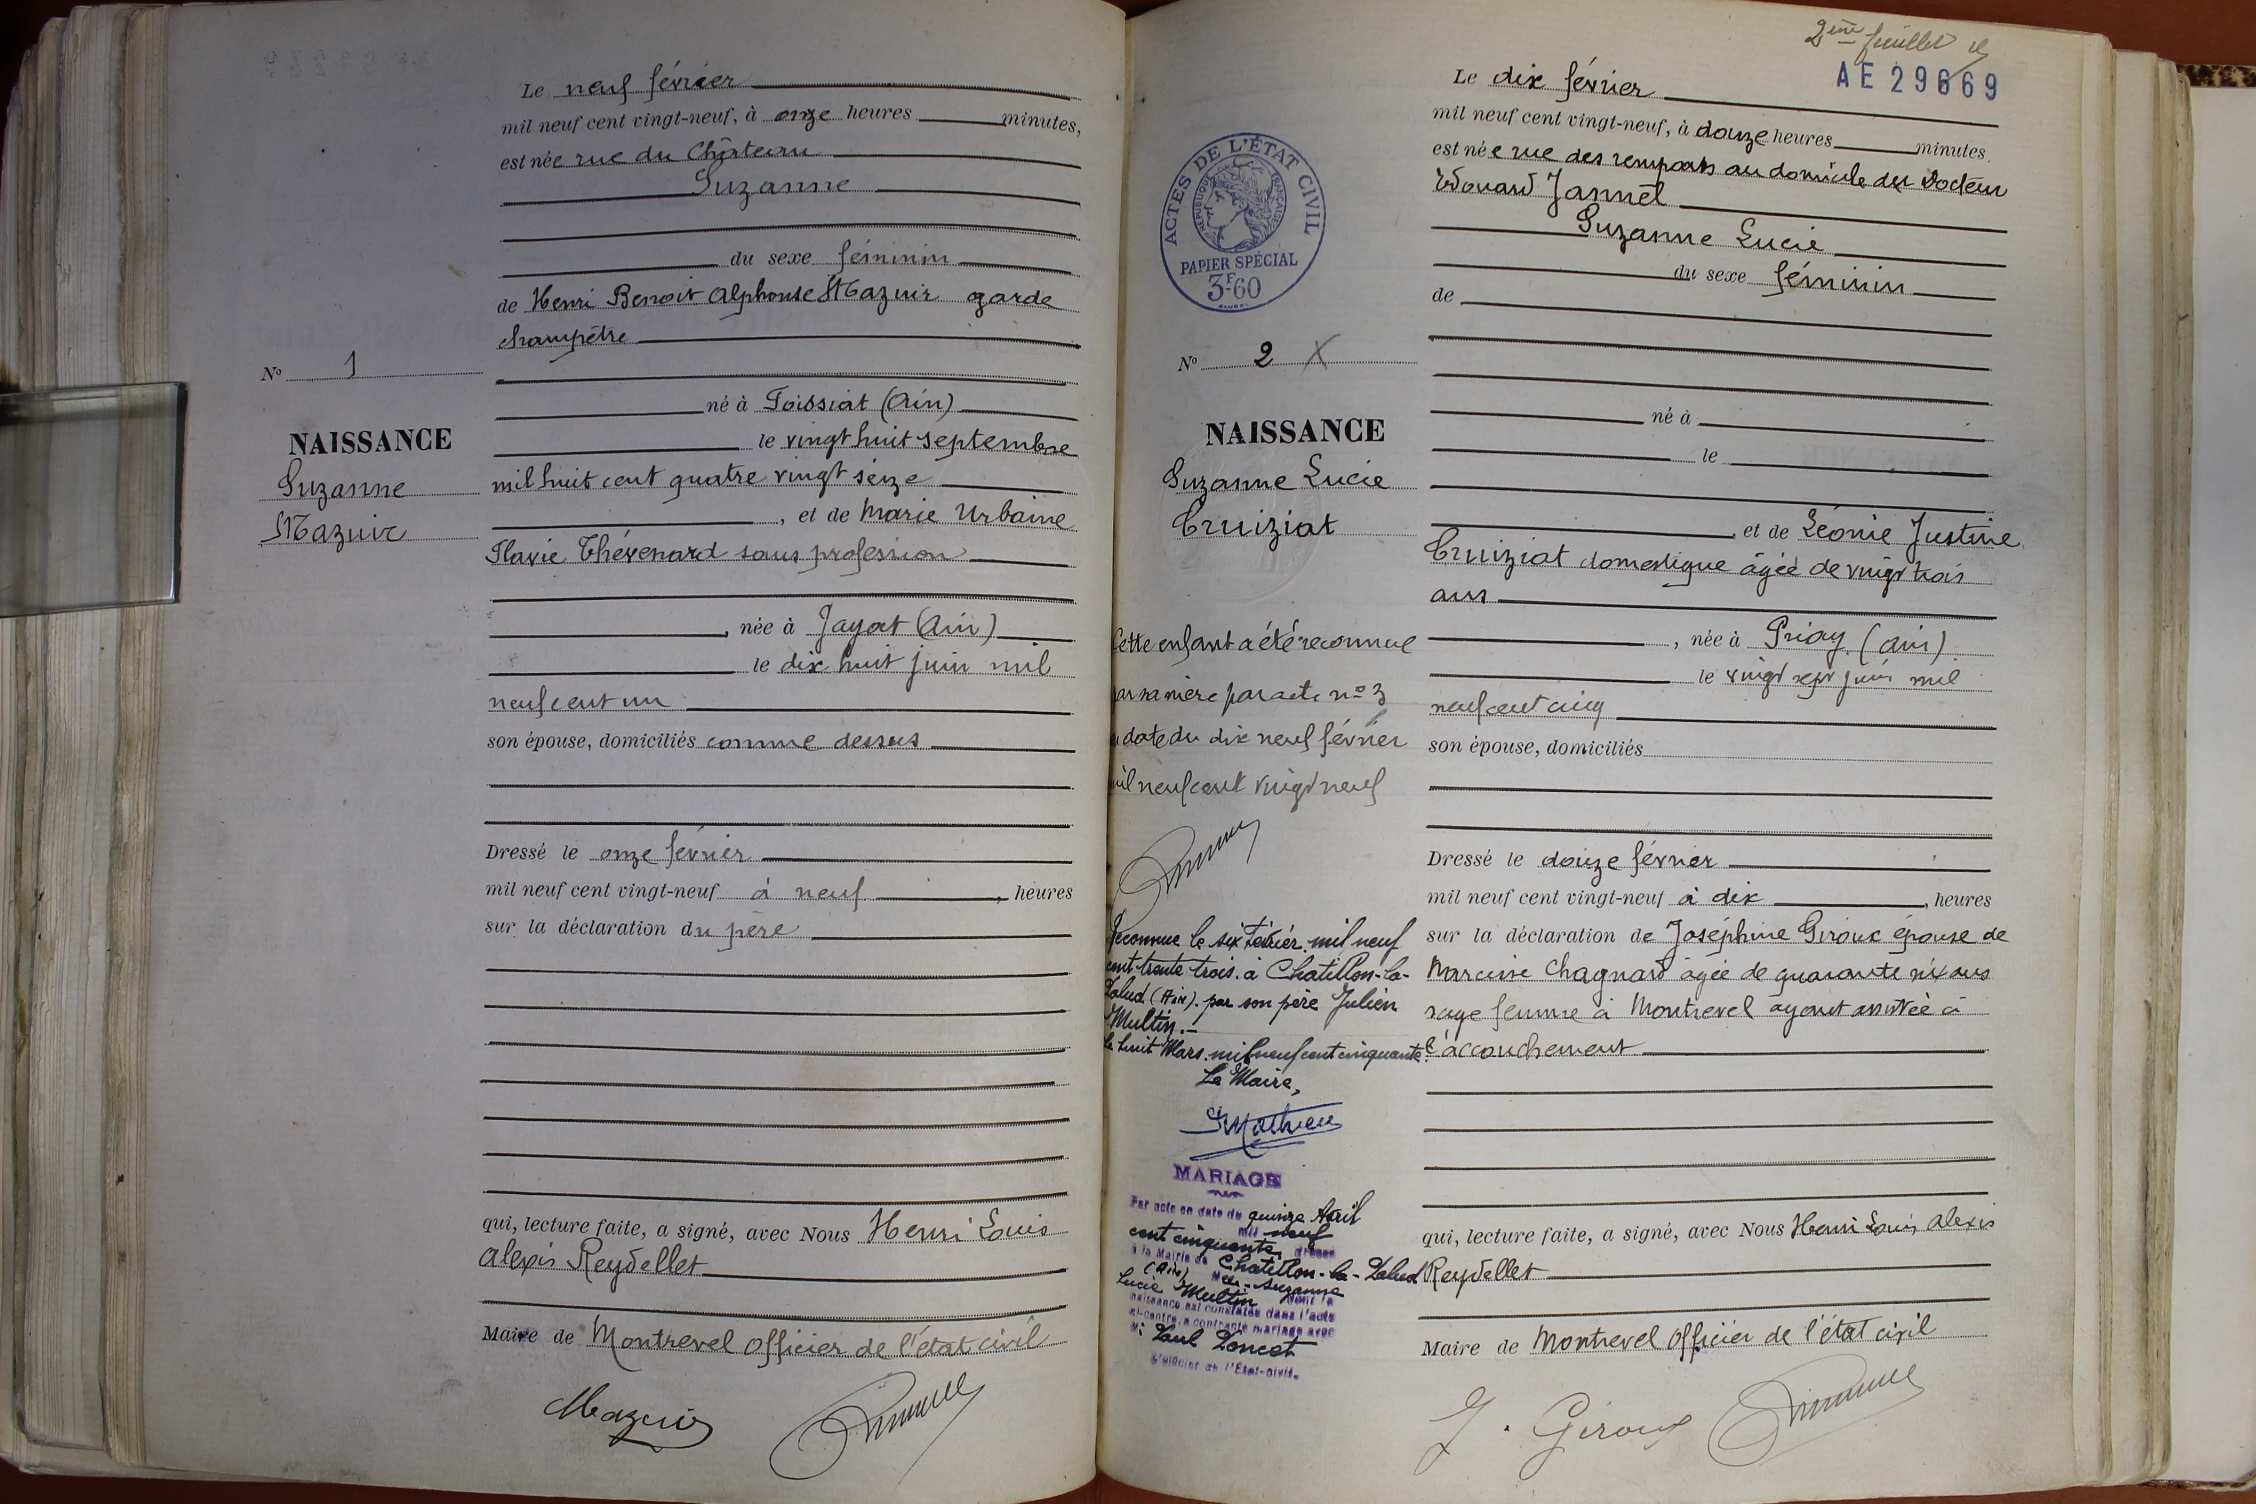 Le neuf février
mil neuf cent vingt-neuf, à onze heures minutes,
est née rue du Château
Suzanne
du sexe féminin
de Henri Benoit Alphonse Mazuir garde
champêtre
né à Foissiat (Ain)
le vingt huit septembre
mil huit cent quatre vingt seize
, et de Marie Urbaine
Flavie Thévenard sans profession
, née à Jayat (Ain)
le dix huit juin mil
neuf cent un
son épouse, domiciliés comme dessus
Dressé le onze février
mil neuf cent vingt-neuf à neuf, heures
sur la déclaration du père
qui, lecture faite, a signé, avec Nous Henri Louis
Alexis Reydellet
Maire de Montrevel officier de l'état civil
Mazuir
No 1
NAISSANCE
Suzanne
Mazuir
2ème feuillet
AE 29669
Le dix février
mil neuf cent vingt-neuf, à douze heures minutes.
est née rue des remparts au domicile du Docteur
Edouard Jannet
Suzanne Lucie
du sexe féminin
de
né à
le
, et de Léonie Justine
Cruiziat domestique âgée de vingt trois
ans
, née à Priay (Ain)
le vingt sept juin mil
neuf cent cinq
son épouse, domiciliés
Dressé le douze février
mil neuf cent vingt-neuf à dix, heures
sur la déclaration de Joséphine Giroux épouse de
Narcisse Chagnard âgée de quarante six ans
sage femme à Montrevel ayant assistée à
l'accouchement
qui, lecture faite, a signé, avec Nous Henri Louis Alexis
Reydellet
Maire de Montrevel officier de l'état civil
J. Giroux
ACTES DE L'ÉTAT CIVIL
RÉPUBLIQUE FRANÇAISE
PAPIER SPÉCIAL
3F60
No 2 X
NAISSANCE
Suzanne Lucie
Cruiziat
Cette enfant a été reconnue
par sa mère par acte no 3
date du dix neuf février
mil neuf cent vingt neuf
Reconnue le six février mil neuf
cent trente trois à Chatillon-la-
Palud (Ain) par son père Julien
Multin.-
le huit Mars mil neuf cent cinquante.
Le Maire,
Mathieu
MARIAGE
Par acte en date du quinze Avril
mil neuf
cent cinquante, dressé
à la Mairie de Chatillon-la-Palud
(Ain) Melle Suzanne
Lucie Multin dont la
naissance est constatée dans l'acte
ci-contre, a contracté mariage avec
M: Paul Poncet
L'Officier de l'Etat-civil.